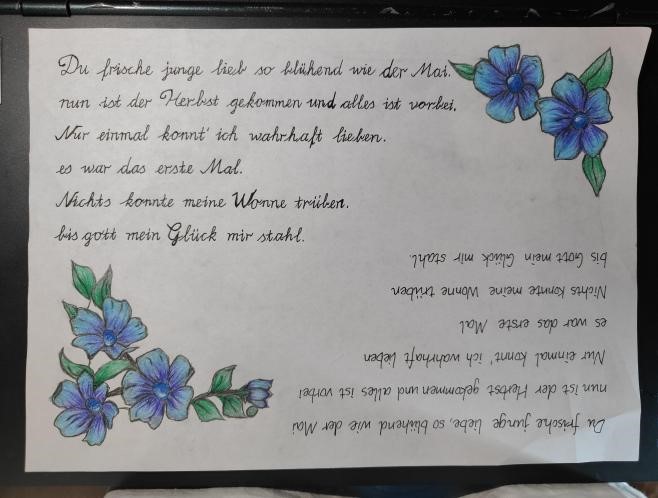 Du frische junge lieb so blühend wie der Mai.
nun ist der Herbst gekommen und alles ist vorbei.
Nur einmal konnt' ich wahrhaft lieben.
es war das erste Mal.
Nichts konnte meine Wonne trüben.
bis gott mein Glück mir stahl.
Du frische junge liebe, so blühend wie der Mai
nun ist der Herbst gekommen und alles ist vorbei
Nur einmal konnt' ich wahrhaft lieben
es war das erste Mal
Nichts konnte meine Wonne trüben
bis Gott mein Glück mir stahl.